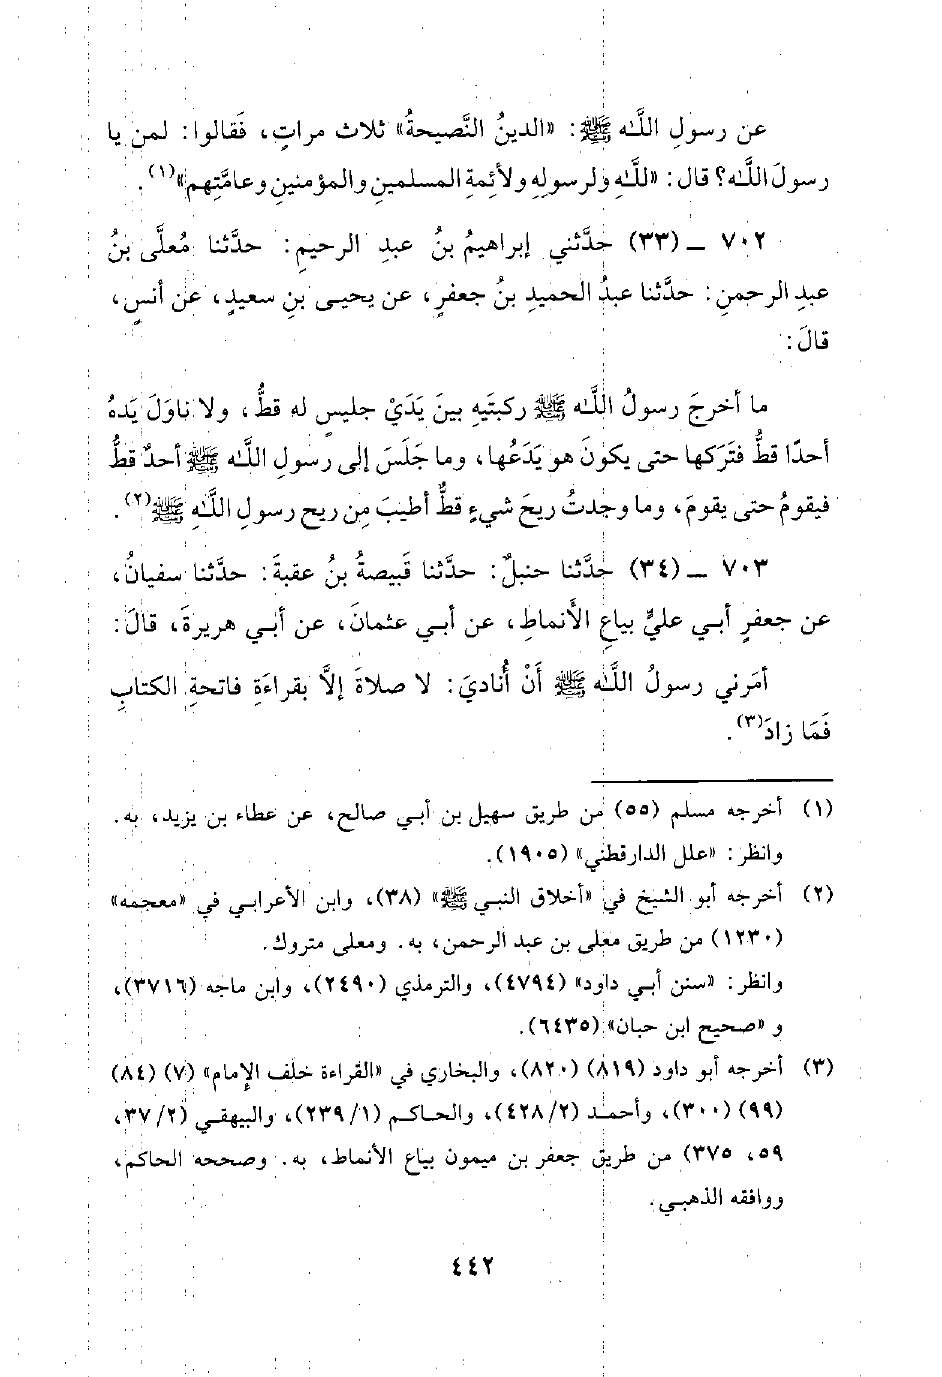 عن رسولِ اللَّه ﷺ: «الدينُ النَّصيحةُ» ثلاث مراتٍ، فَقالوا: لمن يا
رسولَ اللَّه؟ قال: «للَّهِ ولرسولِهِ ولأئِمةِ المسلمينِ والمؤمنينِ وعامَّتِهم»(١).
٧٠٢ ـ (٣٣) حدَّثني إبراهيمُ بنُ عبدِ الرحيمِ: حدَّثنا مُعلَّى بنُ
عبدِ الرحمنِ: حدَّثنا عبدُ الحميدِ بنُ جعفرٍ، عن يحيى بنِ سعيدٍ، عن أنسٍ،
قالَ:
ما أخرجَ رسولُ اللَّه ﷺ ركبتَيهِ بينَ يَدَيْ جليسٍ له قطُّ، ولا ناوَلَ يَدهُ
أحدًا قطُّ فتَرَكها حتى يكونَ هو يَدَعُها، وما جلَسَ إلى رسولِ اللَّه ﷺ أحدٌ قطُّ
فيقومُ حتى يقومَ، وما وجدتُ ريحَ شيءٍ قطُّ أطيبَ مِن ريحِ رسولِ اللَّهِ ﷺ(٢).
٧٠٣ ـ (٣٤) حدَّثنا حنبلٌ: حدَّثنا قَبيصةُ بنُ عقبةَ: حدَّثنا سفيانُ،
عن جعفرٍ أبي عليٍّ بياعِ الأَنماطِ، عن أبي عثمانَ، عن أبي هريرةَ، قالَ:
أمَرني رسولُ اللَّه ﷺ أَنْ أُناديَ: لا صلاةَ إلَّا بقراءَةِ فاتحةِ الكتابِ
فَمَا زادَ(٣).
(١) أخرجه مسلم (٥٥) من طريق سهيل بن أبي صالح، عن عطاء بن يزيد، به.
وانظر: «علل الدارقطني» (١٩٠٥).
(٢) أخرجه أبو الشيخ في «أخلاق النبي ﷺ» (٣٨)، وابن الأعرابي في «معجمه»
(١٢٣٠) من طريق معلى بن عبد الرحمن، به. ومعلى متروك.
وانظر: «سنن أبي داود» (٤٧٩٤)، والترمذي (٢٤٩٠)، وابن ماجه (٣٧١٦)،
و «صحيح ابن حبان» (٦٤٣٥).
(٣) أخرجه أبو داود (٨١٩) (٨٢٠)، والبخاري في «القراءة خلف الإمام» (٧) (٨٤)
(٩٩) (٣٠٠)، وأحمد (٤٢٨/٢)، والحاكم (٢٣٩/١)، والبيهقي (٣٧/٢،
٥٩، ٣٧٥) من طريق جعفر بن ميمون بياع الأنماط، به. وصححه الحاكم،
ووافقه الذهبي.
٤٤٢